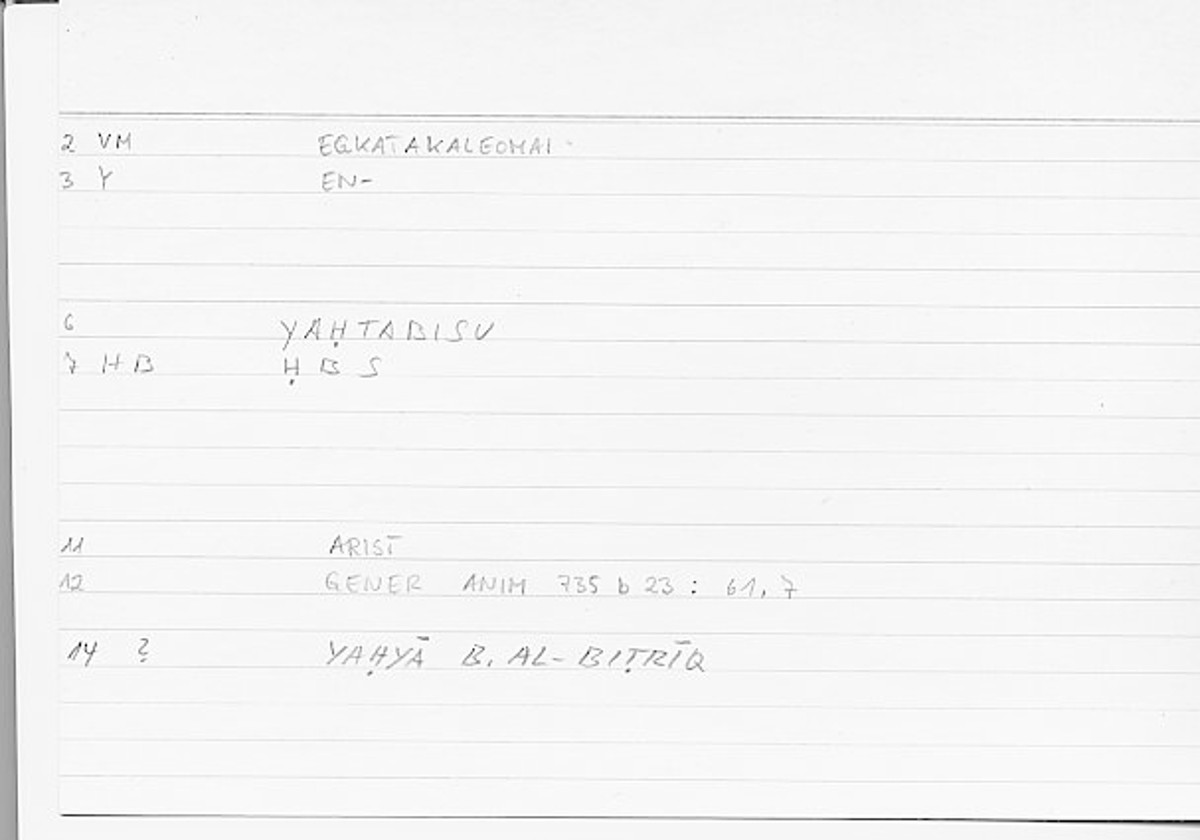 2 VM EGKATAKALEOMAI
3 Y EN-
6 YAḤTABISU
7 HB ḤBS
11 ARIST
12 GENER ANIM 735 b 23 : 61,7
14 ? YAḤYĀ B. AL-BIṬRĪQ